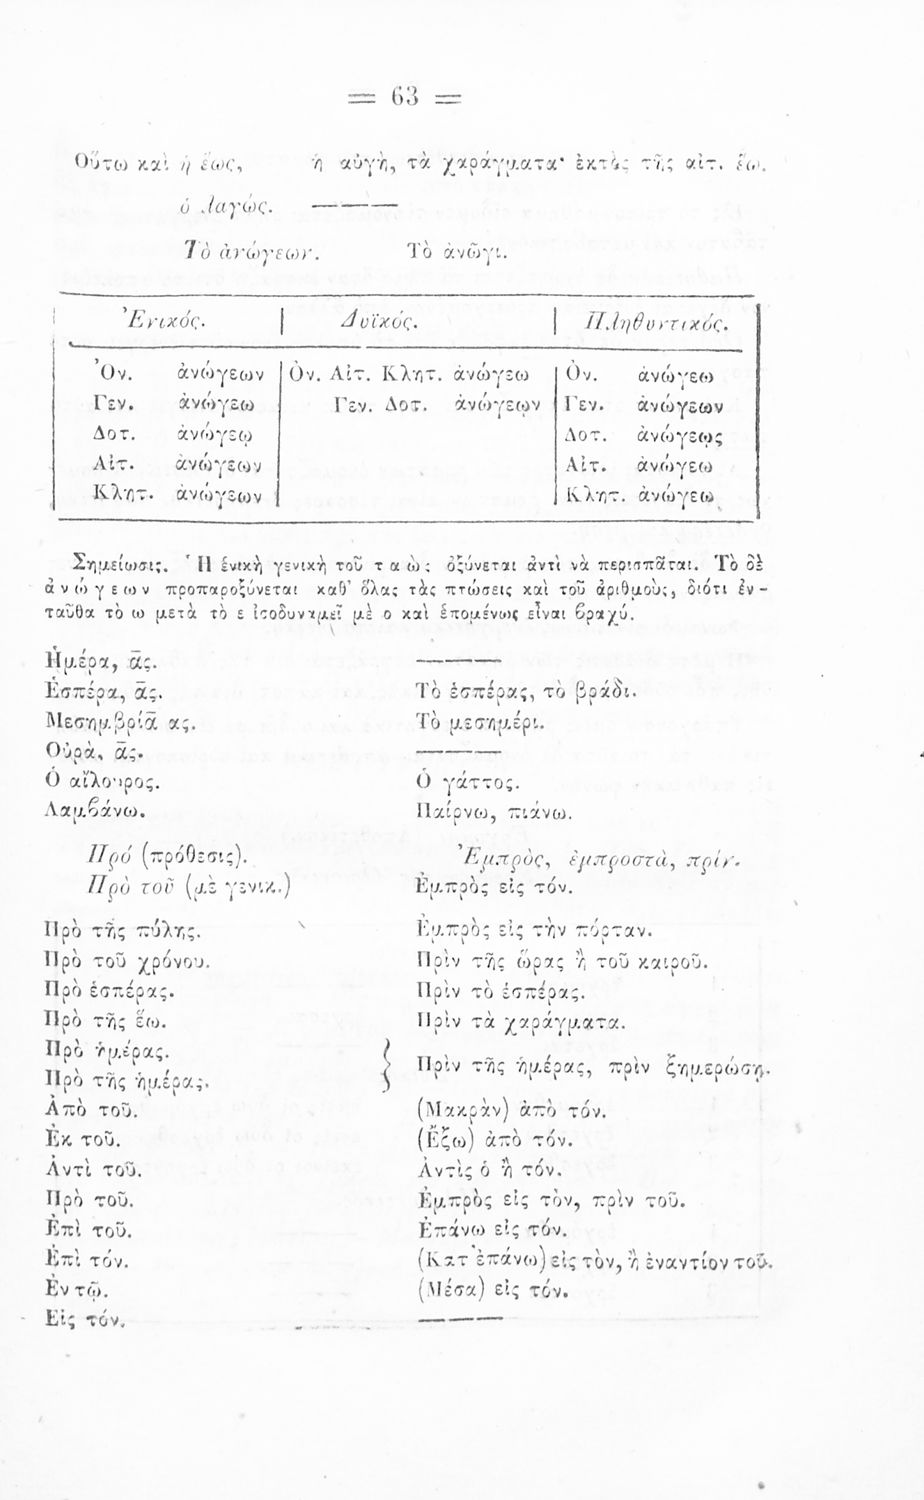 = 63 =
Οὕτω καὶ ἡ ἕως, ἡ αὐγὴ, τὰ χαράγματα· ἐκτὸς τῆς αἰτ. ἕω.
ὁ λαγώς. ———
Τὸ ἀνώγεων. Τὸ ἀνῶγι.
Ἑνικός. | Δυϊκός. | Πληθυντικός.
Ὀν. ἀνώγεων Ὀν. Αἰτ. Κλητ. ἀνώγεω Ὀν. ἀνώγεω
Γεν. ἀνώγεω Γεν. Δοτ. ἀνώγεῳν Γεν. ἀνώγεων
Δοτ. ἀνώγεῳ Δοτ. ἀνώγεῳς
Αἰτ. ἀνώγεων Αἰτ. ἀνώγεω
Κλητ. ἀνώγεων Κλητ. ἀνώγεω
Σημείωσις. Ἡ ἑνικὴ γενικὴ τοῦ ταὼς ὀξύνεται ἀντὶ νὰ περισπᾶται. Τὸ δὲ
ἀνώγεων προπαροξύνεται καθ' ὅλας τὰς πτώσεις καὶ τοῦ ἀριθμοὺς, διότι ἐν-
ταῦθα τὸ ω μετὰ τὸ ε ἰσοδυναμεῖ μὲ ο καὶ ἑπομένως εἶναι βραχύ.
Ἡμέρα, ας. ———
Ἑσπέρα, ας. Τὸ ἑσπέρας, τὸ βράδι.
Μεσημβρία ας. Τὸ μεσημέρι.
Οὐρὰ, ᾶς. ———
Ὁ αἴλουρος. Ὁ γάττος.
Λαμβάνω. Παίρνω, πιάνω.
Πρό (πρόθεσις). Ἐμπρὸς, ἐμπροστὰ, πρίν.
Πρὸ τοῦ (μὲ γενικ.) Ἐμπρὸς εἰς τόν.
Πρὸ τῆς πύλης. Ἐμπρὸς εἰς τὴν πόρταν.
Πρὸ τοῦ χρόνου. Πρὶν τῆς ὥρας ἢ τοῦ καιροῦ.
Πρὸ ἑσπέρας. Πρὶν τὸ ἑσπέρας.
Πρὸ τῆς ἕω. Πρὶν τὰ χαράγματα.
Πρὸ ἡμέρας.
Πρὸ τῆς ἡμέρας. } Πρὶν τῆς ἡμέρας, πρὶν ξημερώσῃ.
Ἀπὸ τοῦ. (Μακρὰν) ἀπὸ τόν.
Ἐκ τοῦ. (Ἔξω) ἀπὸ τόν.
Ἀντὶ τοῦ. Ἀντὶς ὁ ἢ τόν.
Πρὸ τοῦ. Ἐμπρὸς εἰς τὸν, πρὶν τοῦ.
Ἐπὶ τοῦ. Ἐπάνω εἰς τόν.
Ἐπὶ τόν. (Κατ' ἐπάνω) εἰς τὸν, ἢ ἐναντίον τοῦ.
Ἐν τῷ. (Μέσα) εἰς τόν.
Εἰς τόν. ———